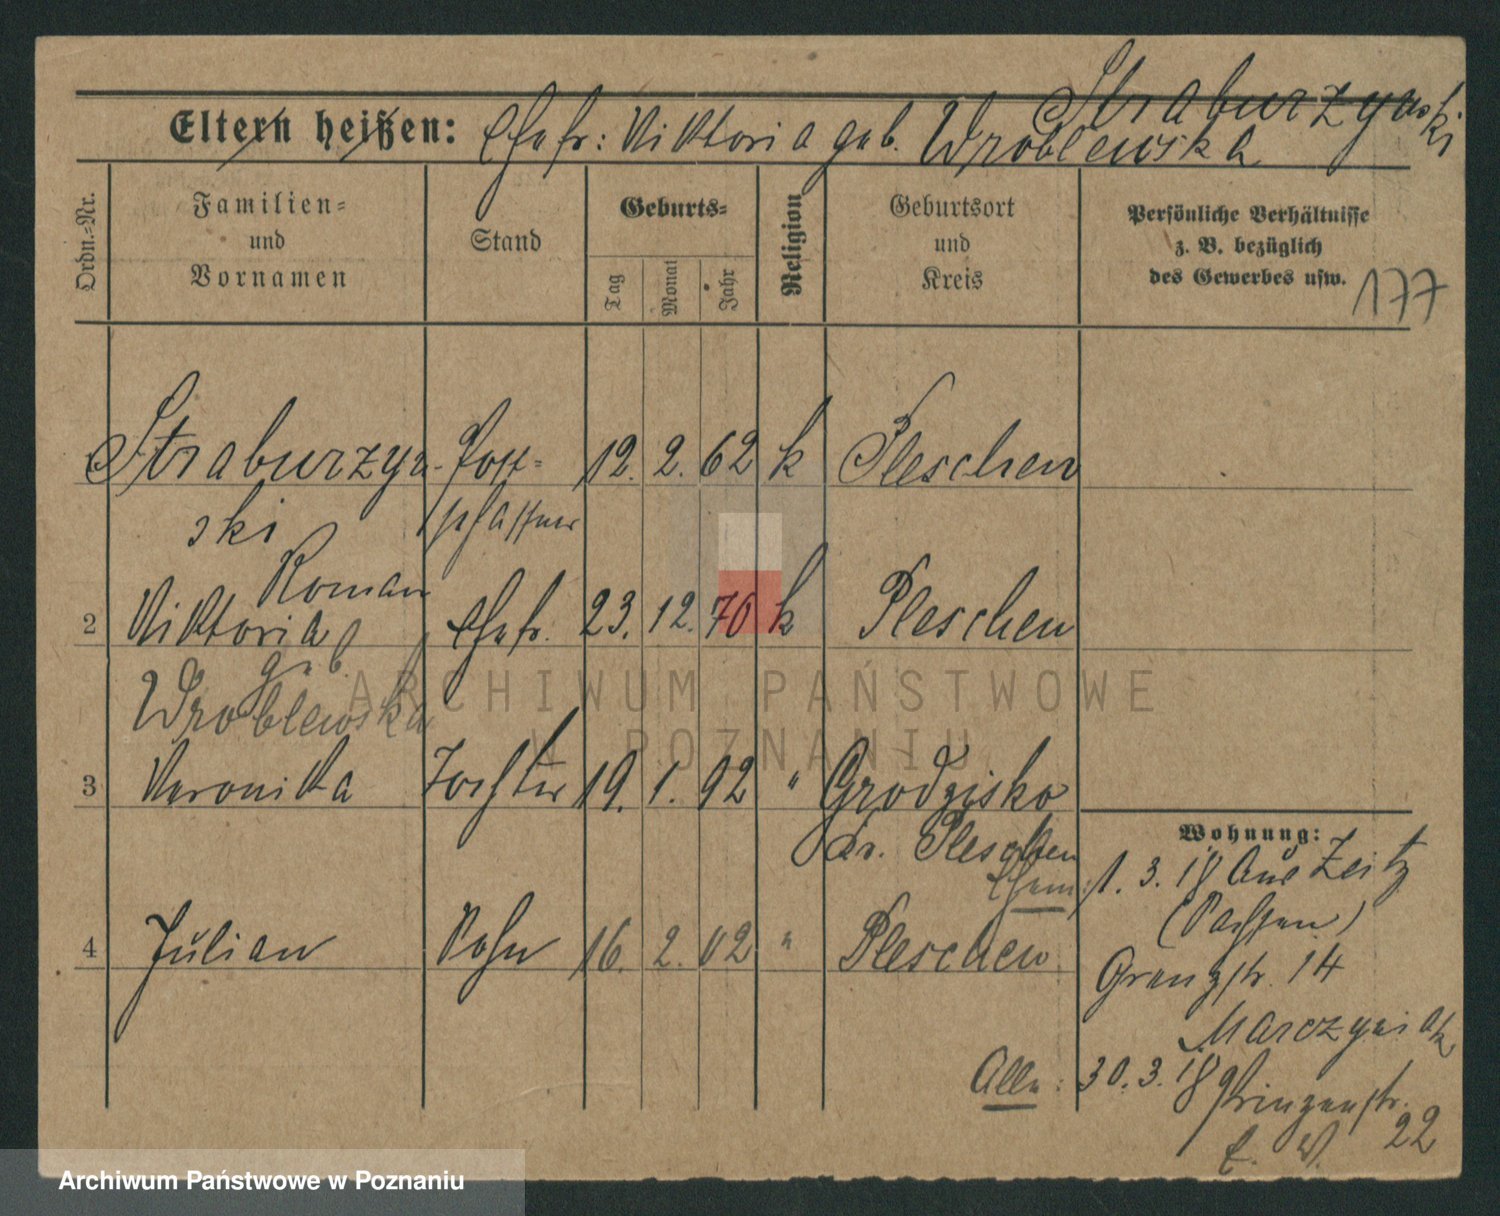 Straburzynski
Eltern heißen: Ehefr: Viktoria geb. Wroblewska
Ordn.-Nr.
Familien-
und
Vornamen
Stand
Geburts-
Tag
Monat
Jahr
Religion
Geburtsort
und
Kreis
Persönliche Verhältnisse
z. B. bezüglich
des Gewerbes usw.
177
Straburzyn- Post- 12. 2. 62 k Pleschen
ski schaffner
Roman
2 Viktoria Ehefr. 23. 12. 70 k Pleschen
geb.
Wroblewska
3 Veronika Tochter 19. 1. 92 " Grodzisko
Kr. Pleschen
Wohnung:
Ehem: 1. 3. 18 aus Zeitz
(Sachsen)
4 Julian Sohn 16. 2. 02 " Pleschen
Grenzstr. 14
Marczyniak
Alle: 30. 3. 18 Prinzenstr.
22
E. W.
ARCHIWUM PAŃSTWOWE
W POZNANIU
Archiwum Państwowe w Poznaniu